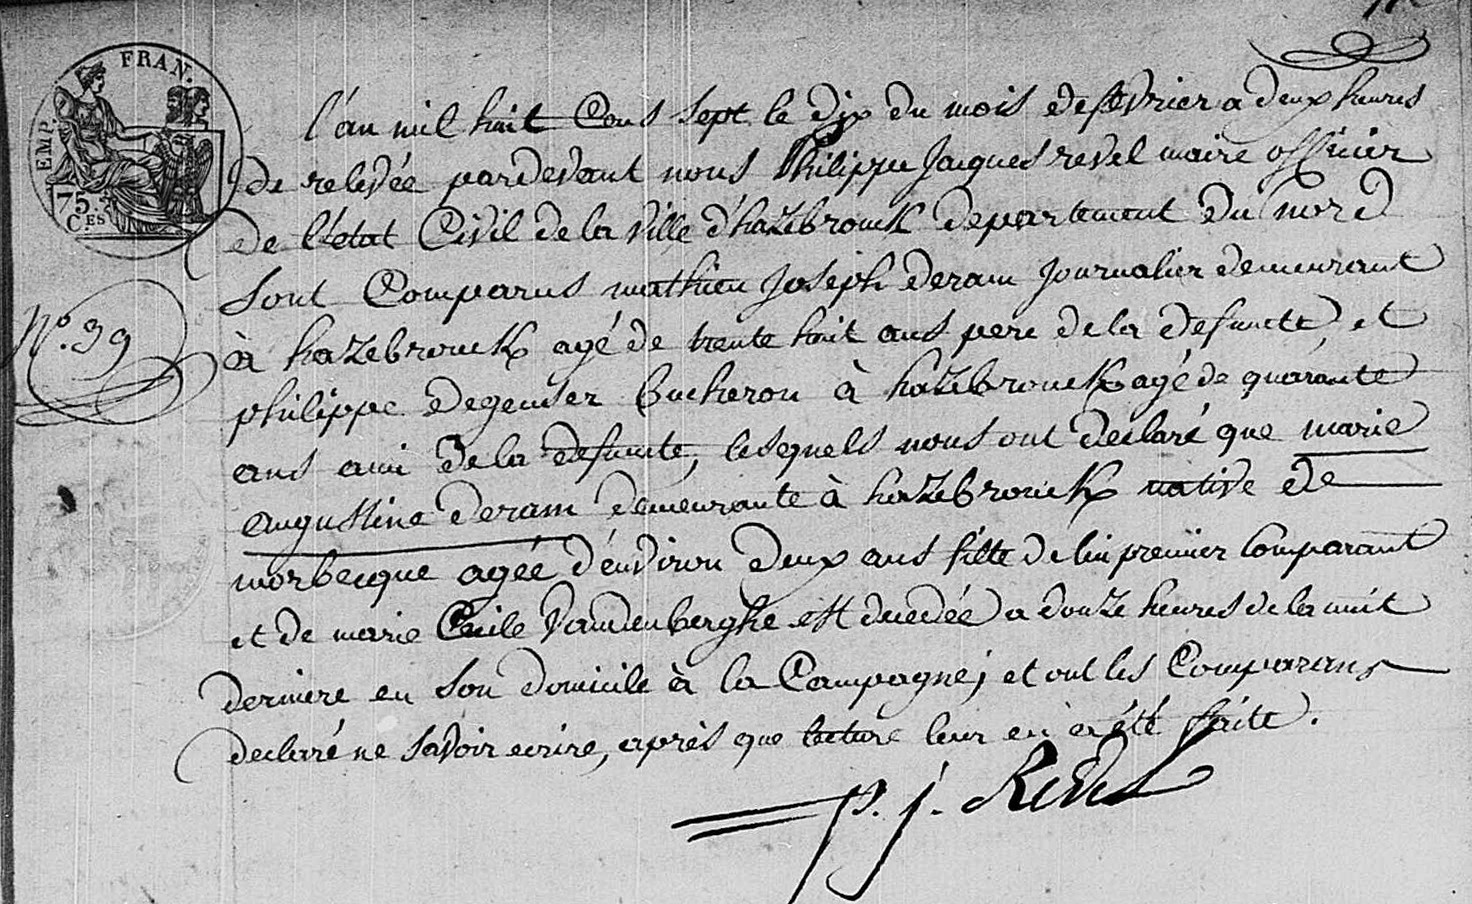 FRAN.
EMP.
75.
C.ES
N.o 39
l'an mil huit Cens sept le dix du mois de fevrier a deux heures
de relevée pardevant nous Philippe Jacques revel maire officier
de l'état Civil de la ville d'hazebrouck departement du nord
sont Comparus mathieu Joseph deram Journalier demeurant
à hazebrouck agé de trente huit ans pere de la defuncte, et
philippe degeuser bucheron à hazebrouck agé de quarante
ans ami de la defuncte, lesquels nous ont declaré que marie
augustine deram demeurante à hazebrouck native de
morbecque agée d'environ deux ans fille de lui premier Comparant
et de marie Cecile Vandenberghe est decedée a douze heures de la nuit
derniere en son domicile à la Campagne; et ont les Comparans
declaré ne savoir ecrire, après que lecture leur en a été faite.
p. j. Revel